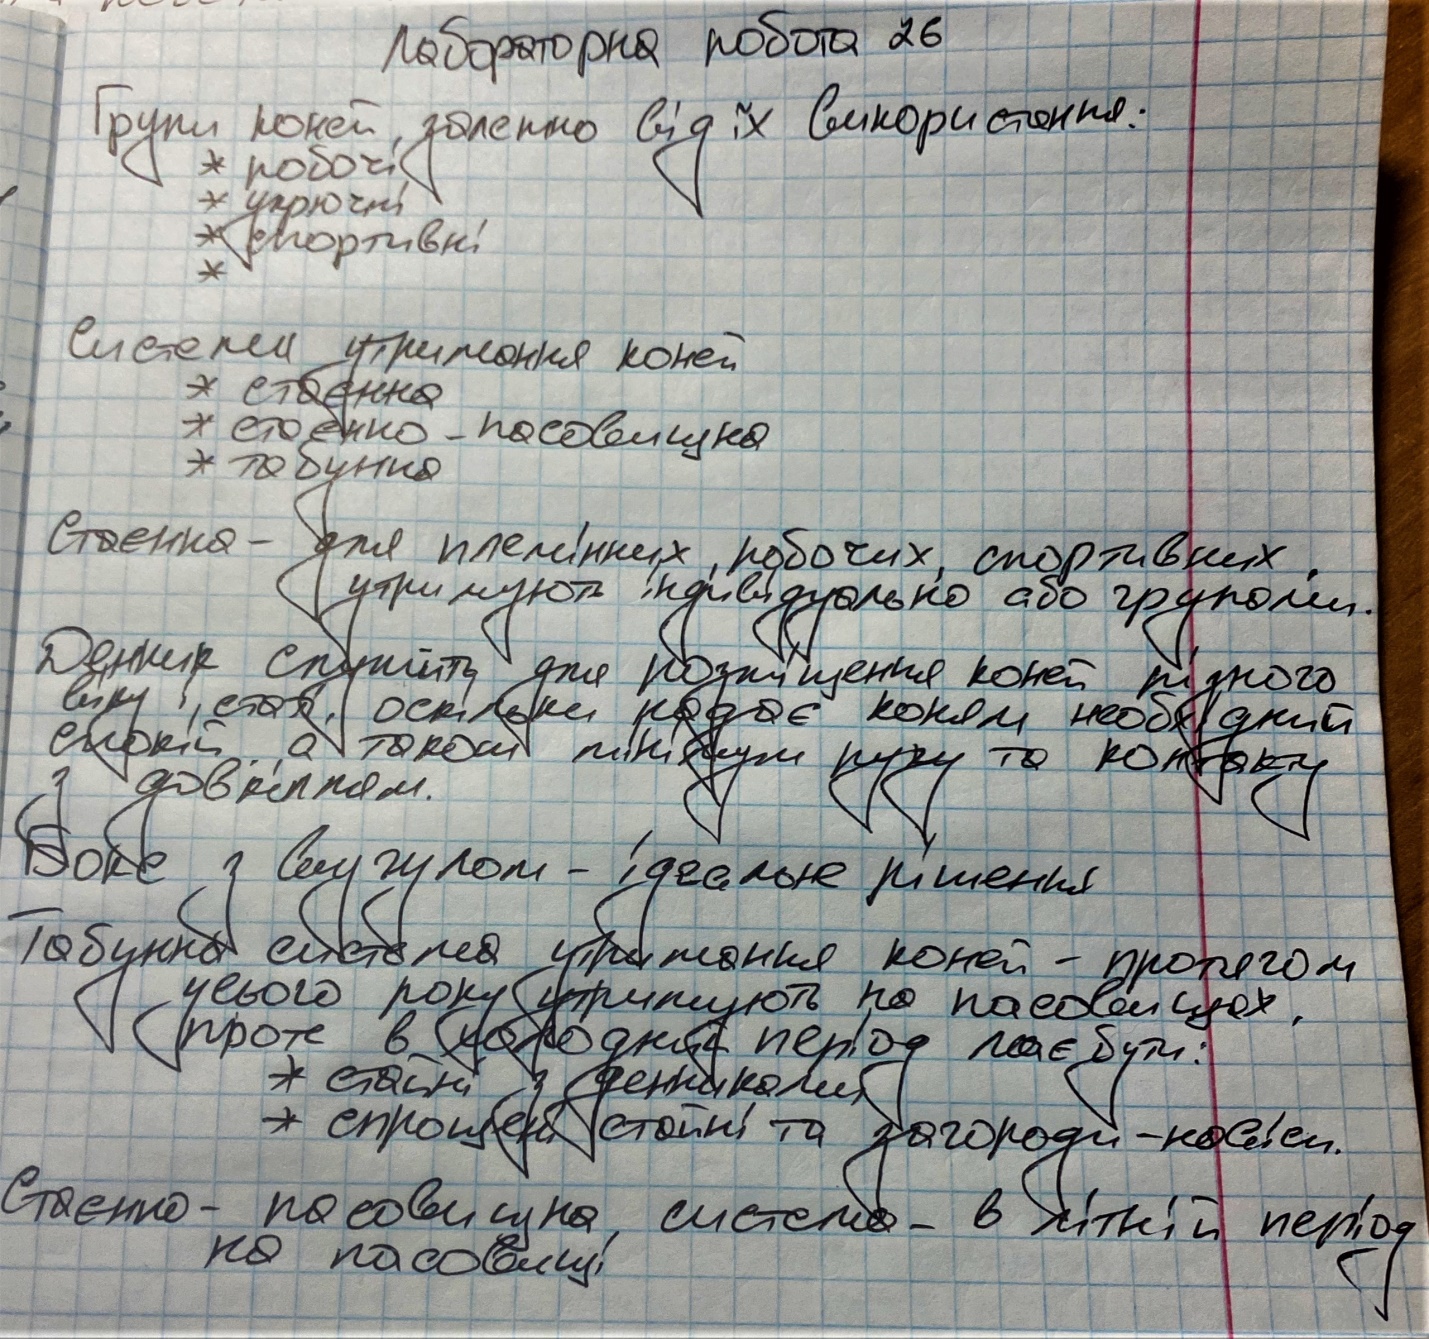 Лабораторна робота 26
Групи коней, залежно від їх використання:
* робочі
* упряжні
* спортивні
*
Системи утримання коней
* стаєнна
* стаєнно-пасовищна
* табунна
Стаєнна - для племінних, робочих, спортивних,
утримують індивідуально або групами.
Денник служить для розміщення коней різного
віку і статі, оскільки надає коням необхідний
спокій, а також мінімум руху та контакту
з довкіллям.
Бокс з вигулом - ідеальне рішення
Табунна система утримання коней - протягом
усього року утримують на пасовищах,
проте в холодний період має бути:
* стайні з денниками
* спрощені стайні та загороди-навіси.
Стаєнно-пасовищна система - в літній період
на пасовищі